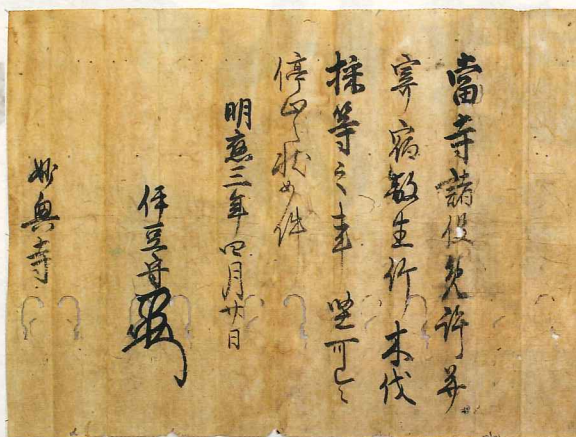 當寺諸役免許并
寄宿殺生竹木伐
採等之事堅可令
停止之状如件
明應三年四月廿日
伊豆守
妙興寺